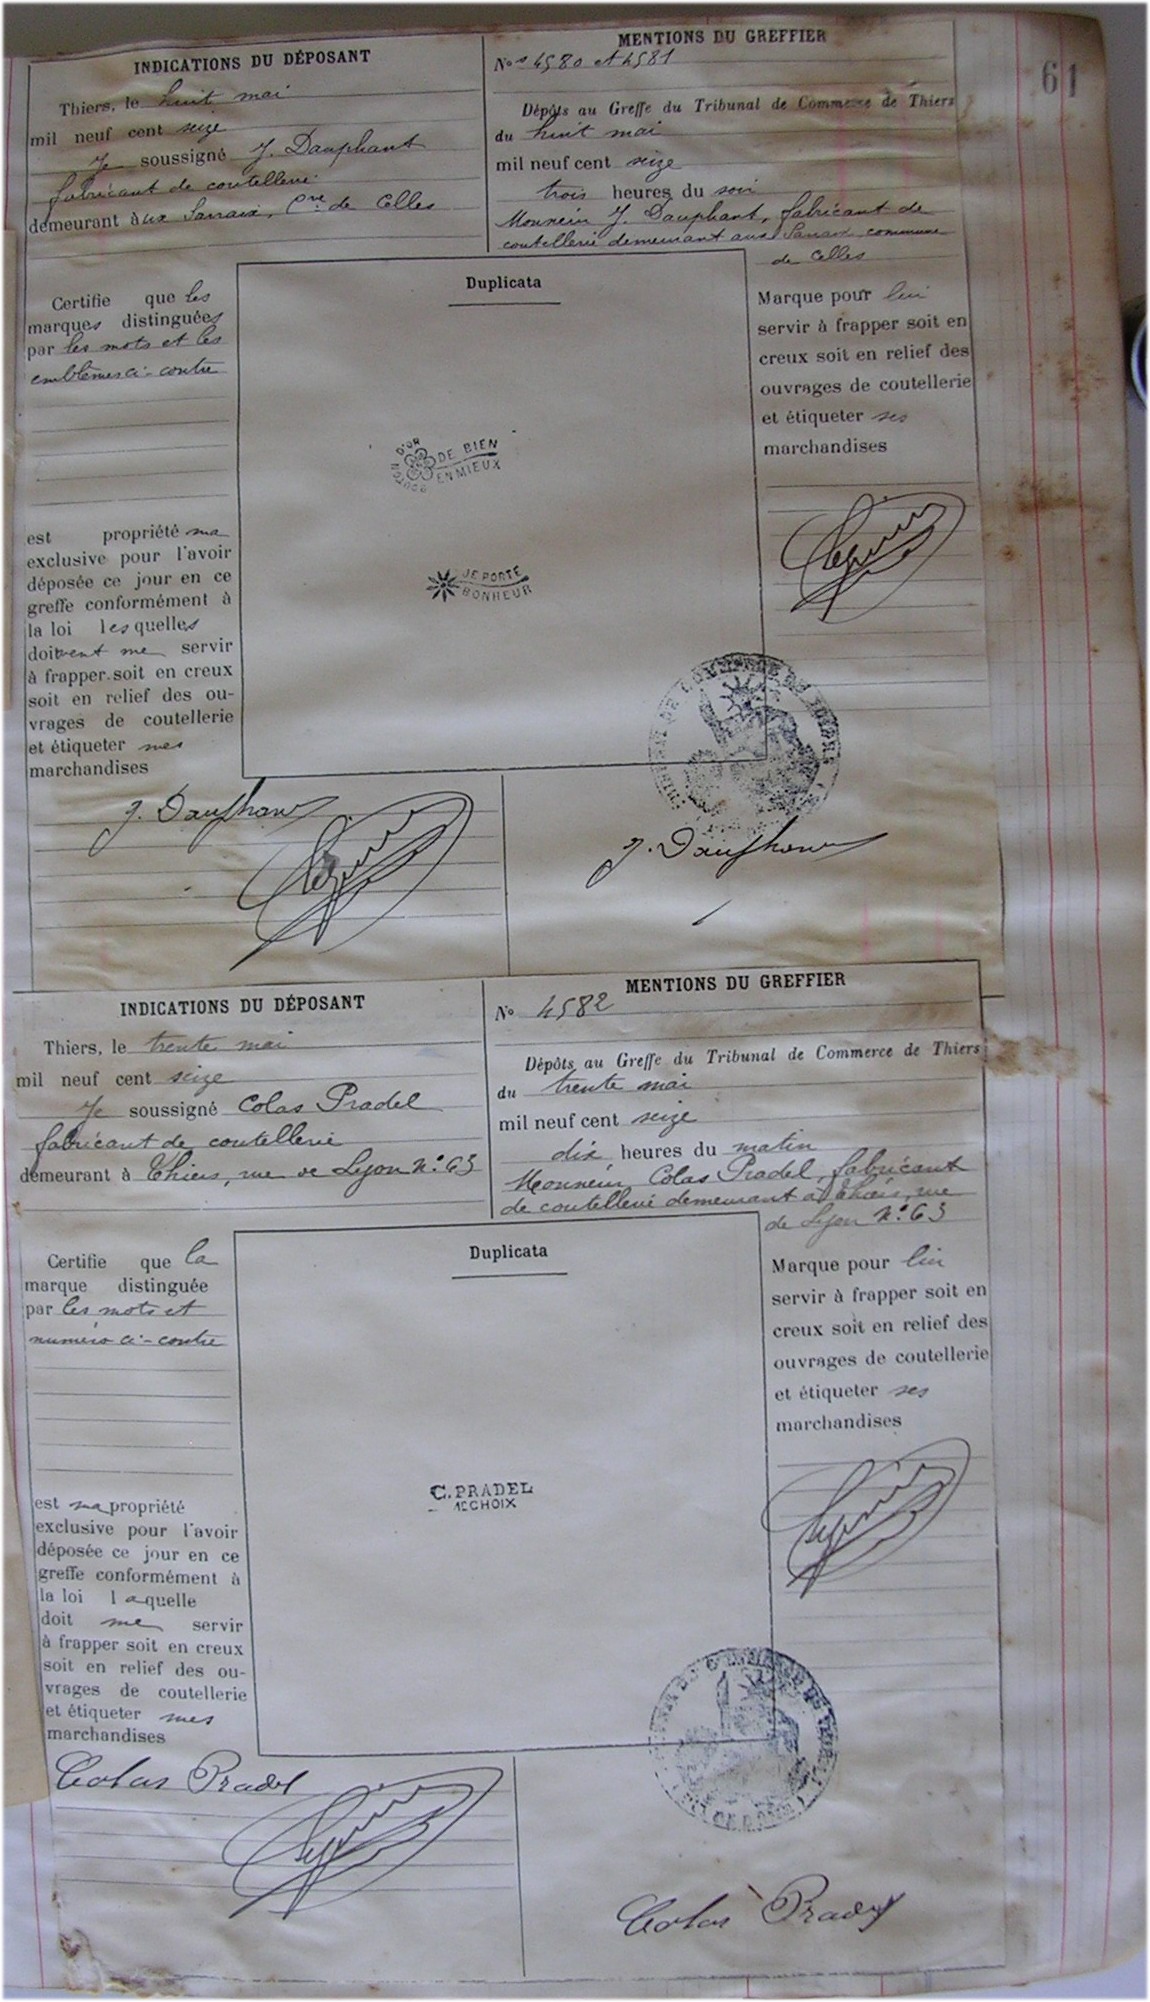 61
INDICATIONS DU DÉPOSANT
Thiers, le huit mai
mil neuf cent seize
Je soussigné J. Dauphant
fabricant de coutellerie
demeurant à ux Sarraix, Cne de Celles
MENTIONS DU GREFFIER
Nos 4580 et 4581
Dépôts au Greffe du Tribunal de Commerce de Thiers
du huit mai
mil neuf cent seize
trois heures du soir
Monsieur J. Dauphant, fabricant de
coutellerie demeurant aux Sarraix commune
de Celles
Certifie que les
marques distinguées
par les mots et les
emblèmes ci-contre
est propriété ma
exclusive pour l'avoir
déposée ce jour en ce
greffe conformément à
la loi lesquelles
doivent me servir
à frapper soit en creux
soit en relief des ou-
vrages de coutellerie
et étiqueter mes
marchandises
Duplicata
BOUTON D'OR
DE BIEN
EN MIEUX
JE PORTE
BONHEUR
Marque pour lui
servir à frapper soit en
creux soit en relief des
ouvrages de coutellerie
et étiqueter ses
marchandises
J. Dauphant
J. Dauphant
INDICATIONS DU DÉPOSANT
Thiers, le trente mai
mil neuf cent seize
Je soussigné Colas Pradel
fabricant de coutellerie
demeurant à Thiers, rue de Lyon N° 63
MENTIONS DU GREFFIER
No 4582
Dépôts au Greffe du Tribunal de Commerce de Thiers
du trente mai
mil neuf cent seize
dix heures du matin
Monsieur Colas Pradel, fabricant
de coutellerie demeurant à Thiers, rue
de Lyon N° 63
Certifie que la
marque distinguée
par les mots et
numéro ci-contre
est ma propriété
exclusive pour l'avoir
déposée ce jour en ce
greffe conformément à
la loi laquelle
doit me servir
à frapper soit en creux
soit en relief des ou-
vrages de coutellerie
et étiqueter mes
marchandises
Duplicata
C. PRADEL
1E CHOIX
Marque pour lui
servir à frapper soit en
creux soit en relief des
ouvrages de coutellerie
et étiqueter ses
marchandises
Colas Pradel
Colas Pradel